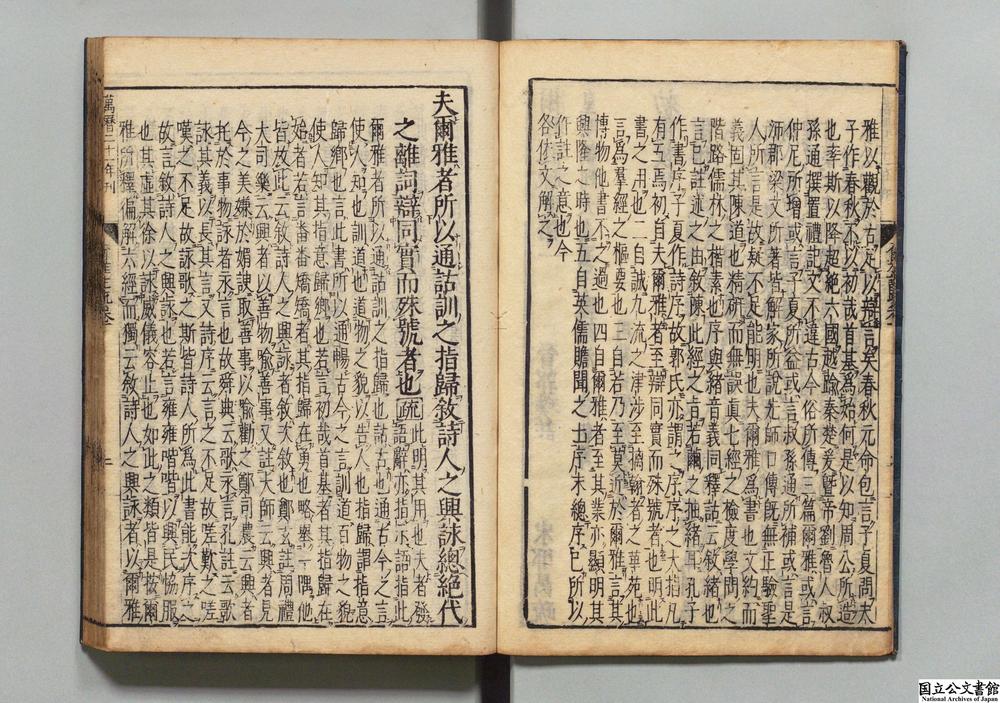 雅以觀於古足以辯言矣春秋元命包言子夏問夫
子作春秋不以初哉首基爲始何是以知周公所造
也率斯以降超絶六國越踰秦楚爰曁帝劉魯人叔
孫通撰置禮記文不違古今俗所傳三篇爾雅或言
仲尼所增或言子夏所益或言叔孫通所補或言是
沛郡梁文所著皆解家所說先師口傳旣無正驗聖
人所言是故疑不足能明也夫爾雅之爲書也文約而
義固其陳道也精研而無誤眞七經之檢度學問之
階路儒林之楷素也序與緒音義同釋詁云敘緒也
言已註述之由敘陳此經之旨若繭之抽緒耳孔子
作書序子夏作詩序故郭氏亦謂之序序之大指凡
有五焉初自夫爾雅者至辯同實而殊號者也明此
書之用也二自誠九流之津涉至摛翰者之華苑也
言爲羣經之樞要也三自若乃至莫近於爾雅言其
博物他書不之過也四自爾雅者至其業亦顯明其
興隆之時也五自英儒贍聞之士序末總序已所以
作註之意也今
各依文解之
夫爾雅者所以通詁訓之指歸敘詩人之興詠總絶代
之離詞辯同實而殊號者也
疏
此明其用也夫者發
語辭亦指示語指此
爾雅者所以通詁訓之指歸也詁古也通古今之言
使人知也訓道也道物之貌以告人也指歸謂指意
歸鄉也言此書所以通暢古今之言訓道百物之貌
使人知其指意歸鄉也若言初哉首基者其指歸在
始者若言番番矯矯者其指歸在勇也略舉一隅他
皆放此云敘詩人之興詠者敘次敘也鄭玄註周禮
大司樂云興者以善物喩善事又註大師云興者見
今之美嫌於媚諛取善事以喩勸之鄭司農云興者
托於事物詠者永言也故舜典云歌永言孔註云歌
詠其義以長其言又詩序云言之不足故嗟歎之嗟
嘆之不足故詠歌之斯皆詩人所爲此書能次序之
故言敘詩人之興詠也若言雍雍喈喈以興民協服
也其虛其徐以詠威儀容止也如此之類皆是故爾
雅所釋偏解六經而獨云敘詩人之興詠者以爾雅
萬曆二十一年刊
国立公文書館
National Archives of Japan